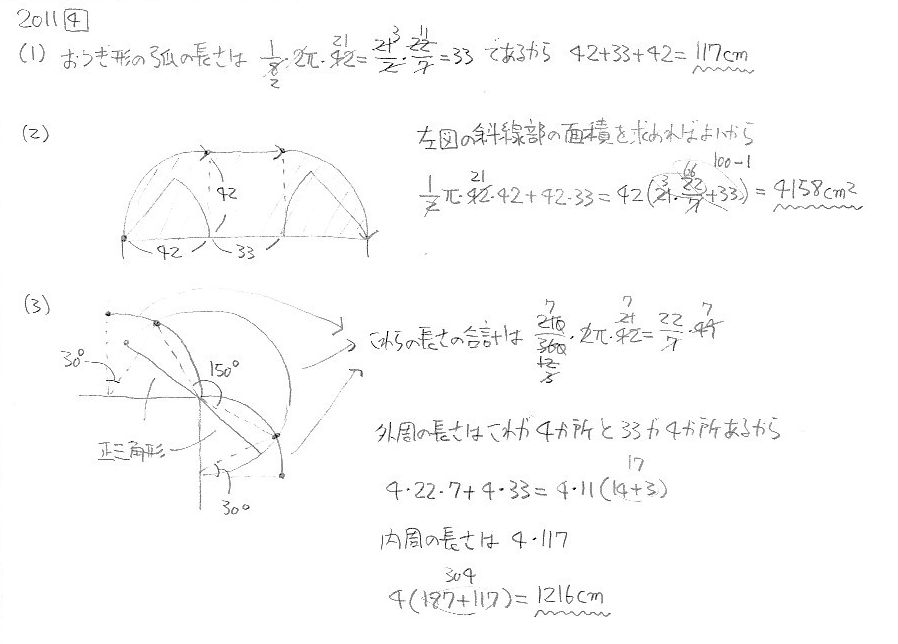 2011 4
(1) おうぎ形の弧の長さは 1/8・2π・42 = 21/2・22/7 = 33 であるから 42+33+42 = 117cm
(2)
左図の斜線部の面積を求めればよいから
1/2 π・42・42 + 42・33 = 42(21・22/7 + 33) = 4158cm²
100-1
42
42 33
(3)
これらの長さの合計は 210/360・2π・42 = 22/7・49
30°
150°
正三角形
30°
外周の長さはこれが4か所と33が4か所あるから
4・22・7 + 4・33 = 4・11(14+3)
17
内周の長さは 4・117
304
4(187+117) = 1216cm